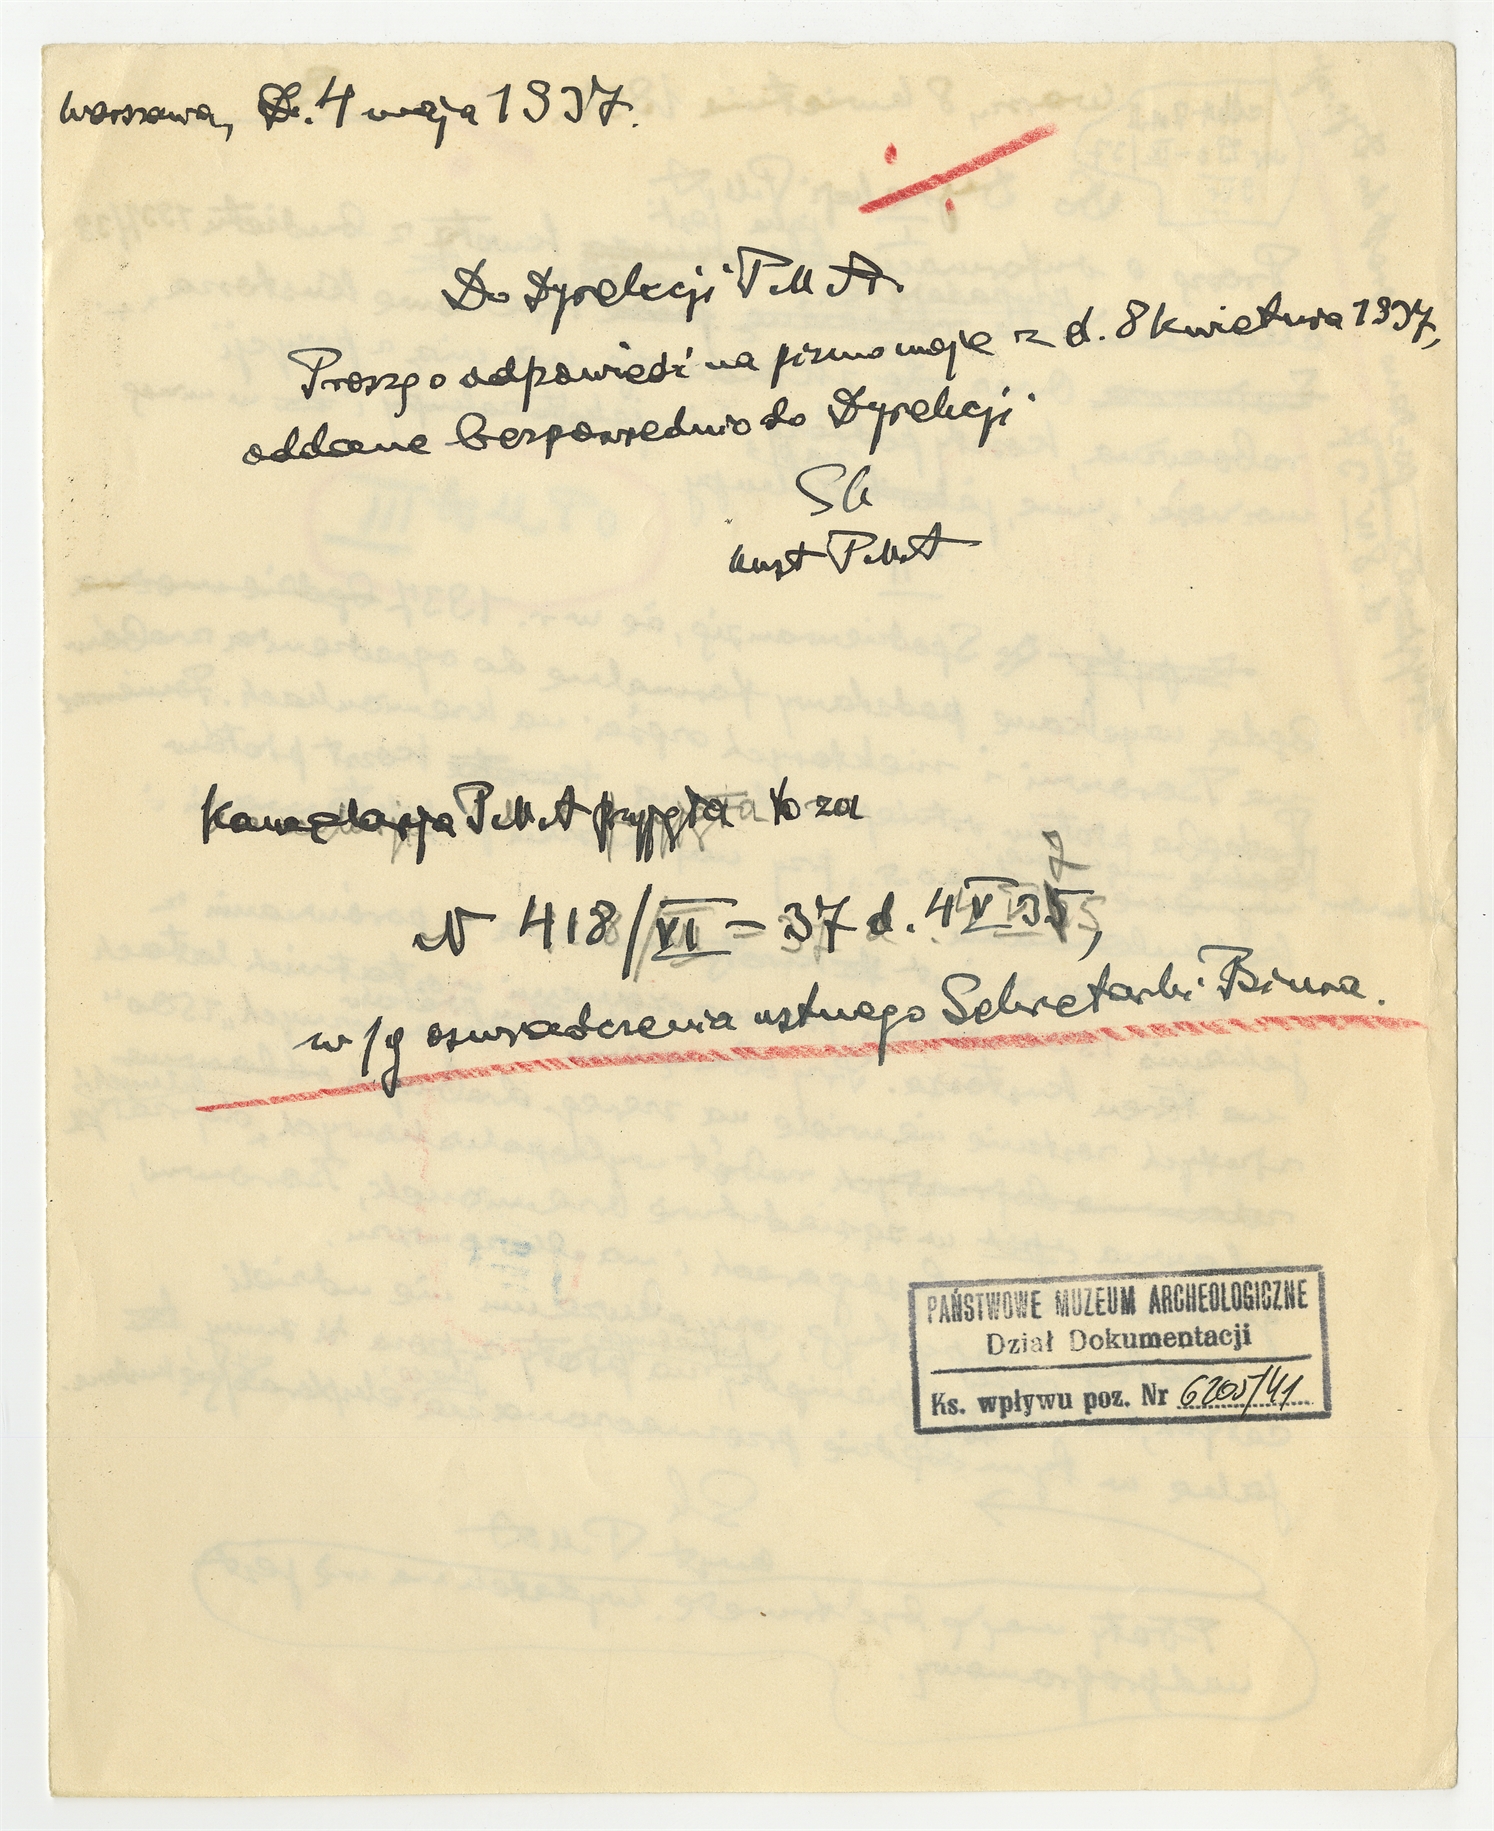 Warszawa, D. 4 maja 1937.
Do Dyrekcji P.M.A.
Proszę o odpowiedź na pismo moje z d. 8 kwietnia 1937,
oddane bezpośrednio do Dyrekcji
Sk
kust PMA
Kancelarja P.M.A przyjęła to za
N 418/VI - 37 d. 4 V 37,
w/g oświadczenia ustnego Sekretarki Biura.
PAŃSTWOWE MUZEUM ARCHEOLOGICZNE
Dział Dokumentacji
Ks. wpływu poz. Nr 6205/41